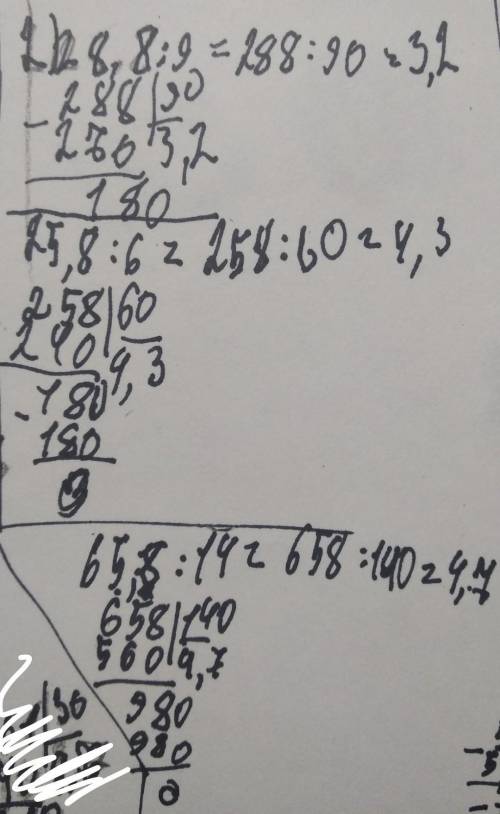 2) 28,8:9 = 288:90 = 3,2
288|90
- 270 3,2
180
25,8:6 = 258:60 = 4,3
258|60
240 4,3
- 180
180
0
65,8:14 = 658:140 = 4,7
658|140
560 4,7
980
980
0
30